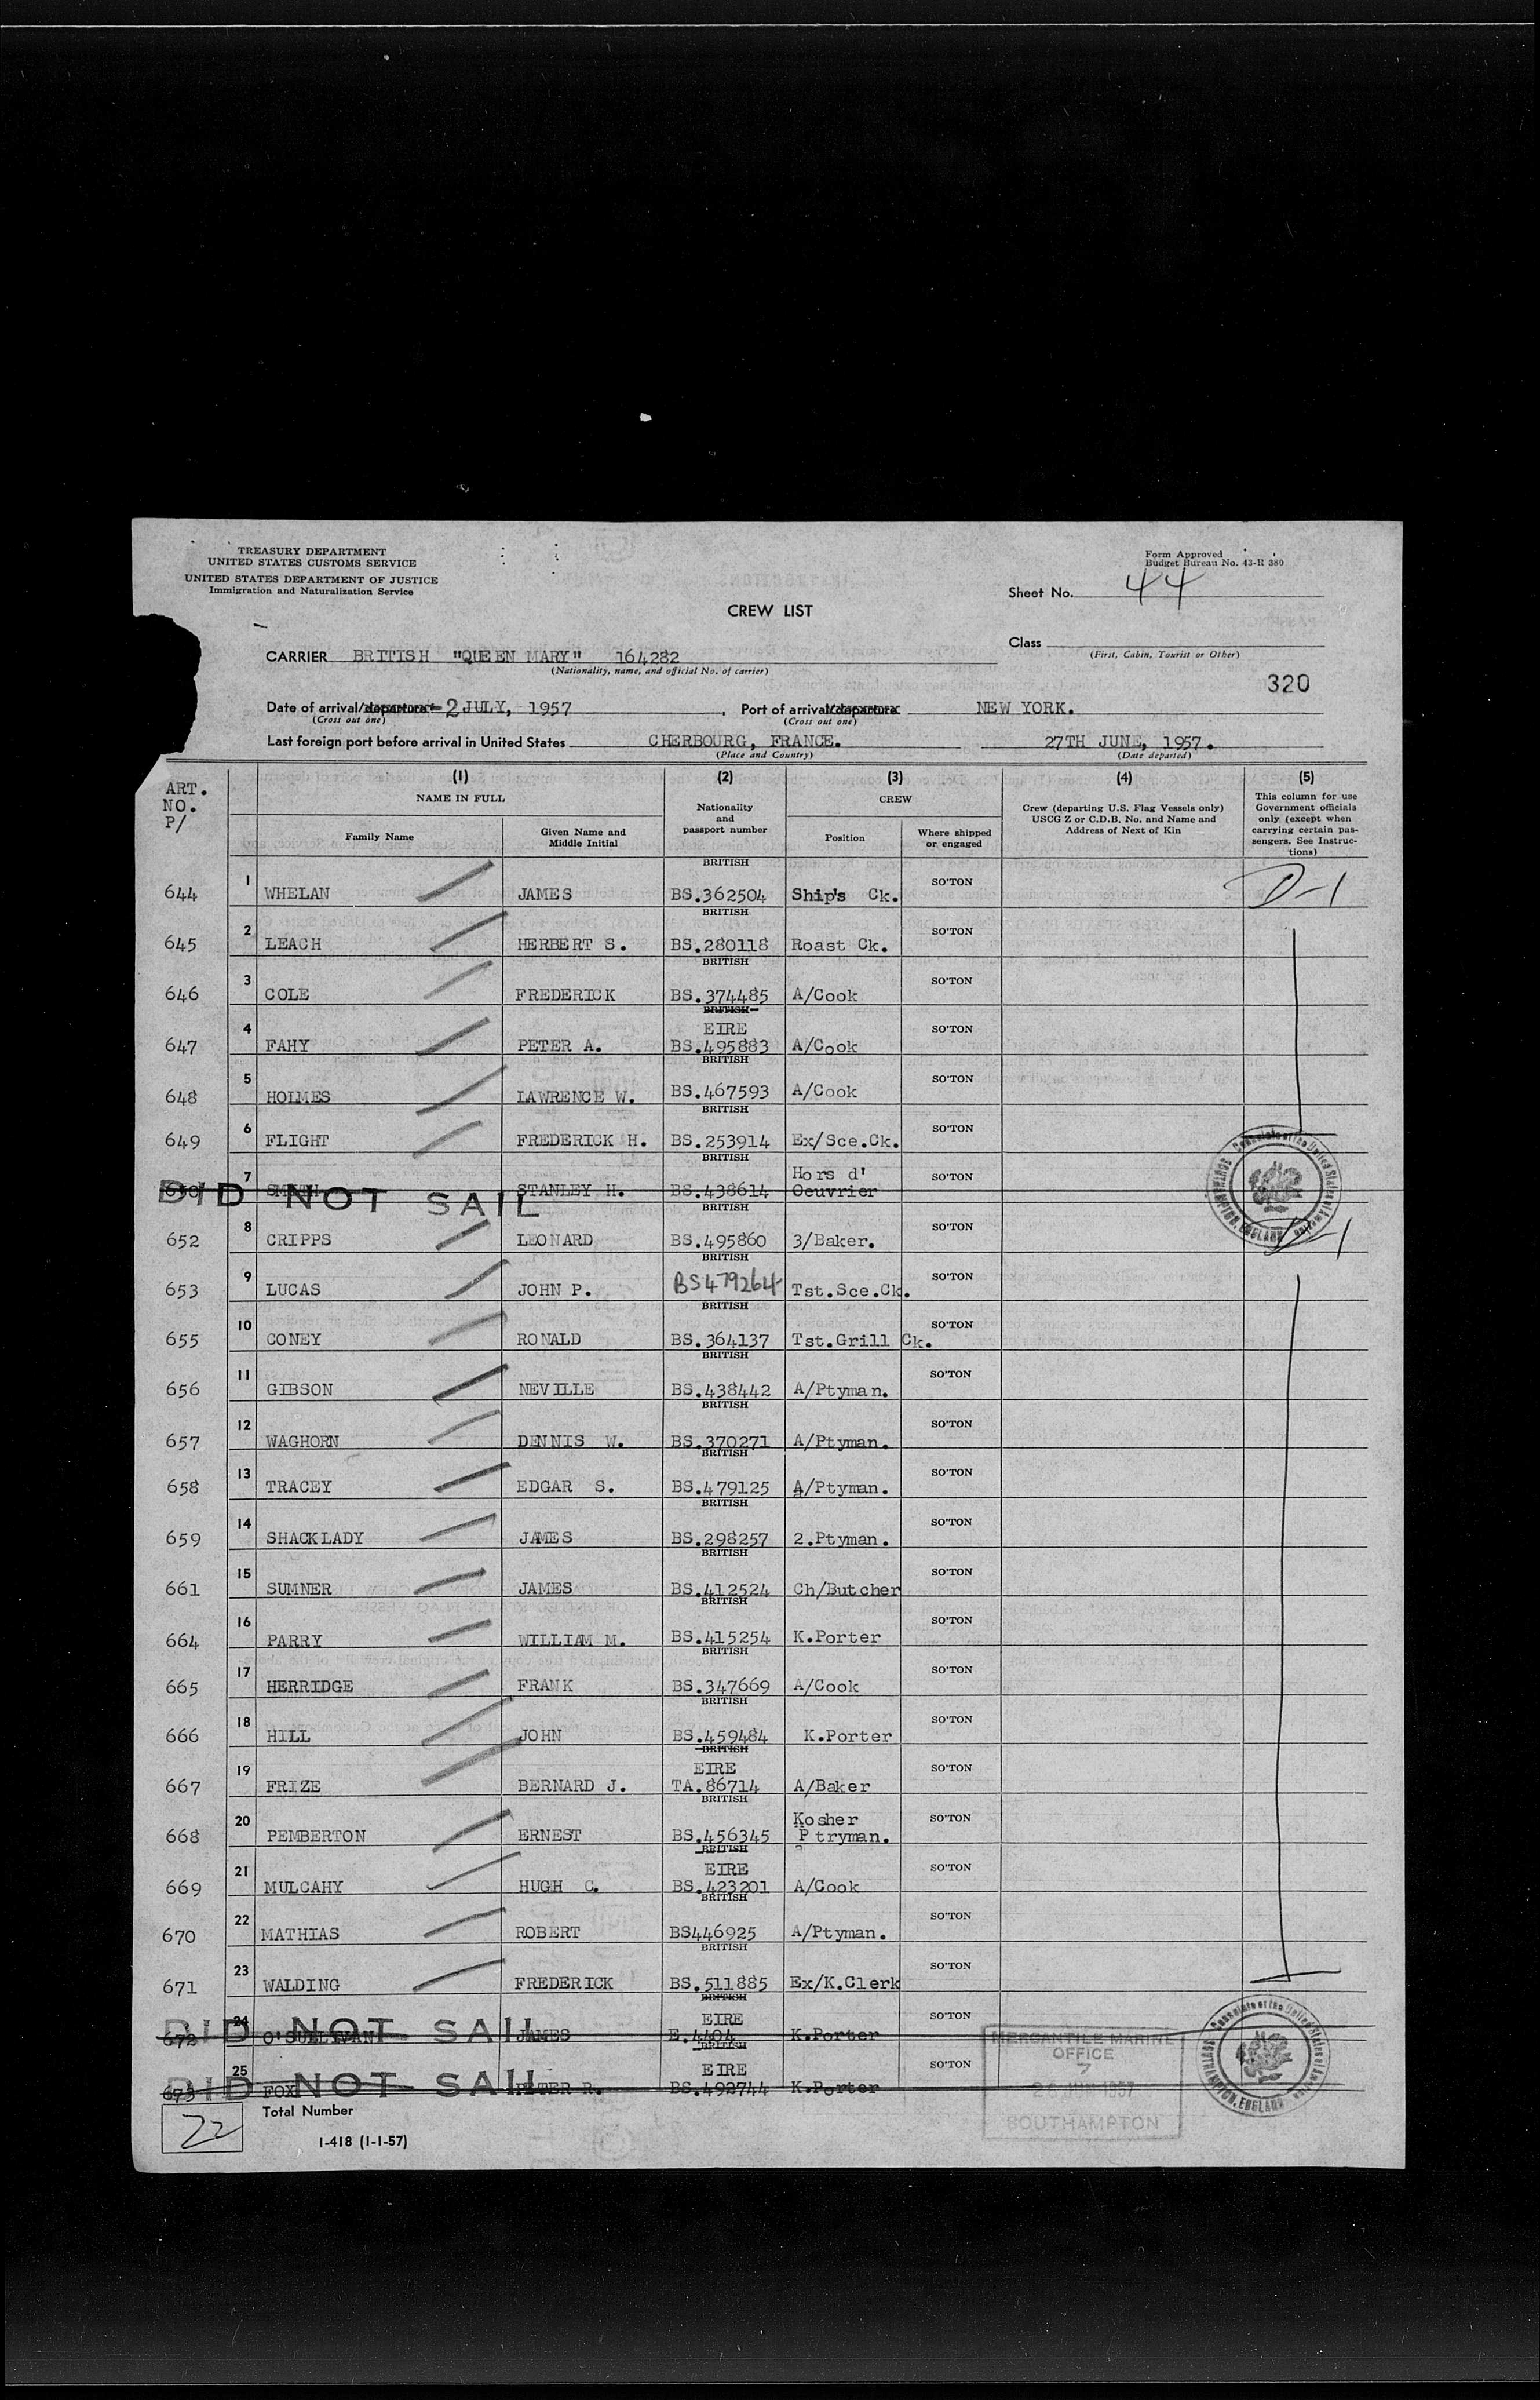 TREASURY DEPARTMENT
UNITED STATES CUSTOMS SERVICE
UNITED STATES DEPARTMENT OF JUSTICE
Immigration and Naturalization Service
Form Approved
Budget Bureau No. 43-R 380
Sheet No. 44
CREW LIST
Class
(First, Cabin, Tourist or Other)
CARRIER BRITISH "QUEEN MARY" 164282
(Nationality, name, and official No. of carrier)
320
Date of arrival/departure 2 JULY, 1957, Port of arrival/departure NEW YORK.
(Cross out one) (Cross out one)
Last foreign port before arrival in United States CHERBOURG, FRANCE. 27TH JUNE, 1957.
(Place and Country) (Date departed)
ART. NO. P/
(1) (2) (3) (4) (5)
NAME IN FULL
Family Name
Given Name and Middle Initial
Nationality and passport number
CREW
Position
Where shipped or engaged
Crew (departing U.S. Flag Vessels only) USCG Z or C.D.B. No. and Name and Address of Next of Kin
This column for use Government officials only (except when carrying certain passengers. See Instructions)
644 1 WHELAN JAMES BRITISH BS.362504 Ship's Ck. SO'TON D-1
645 2 LEACH HERBERT S. BRITISH BS.280118 Roast Ck. SO'TON
646 3 COLE FREDERICK BRITISH BS.374485 A/Cook SO'TON
647 4 FAHY PETER A. BRITISH EIRE BS.495883 A/Cook SO'TON
648 5 HOLMES LAWRENCE W. BRITISH BS.467593 A/Cook SO'TON
649 6 FLIGHT FREDERICK H. BRITISH BS.253914 Ex/Sce.Ck. SO'TON
650 7 SMITH STANLEY H. BRITISH BS.438614 Hors d' Oeuvrier SO'TON
DID NOT SAIL
652 8 CRIPPS LEONARD BRITISH BS.495860 3/Baker. SO'TON D-1
653 9 LUCAS JOHN P. BRITISH BS479264 Tst.Sce.Ck. SO'TON
655 10 CONEY RONALD BRITISH BS.364137 Tst.Grill Ck. SO'TON
656 11 GIBSON NEVILLE BRITISH BS.438442 A/Ptyman. SO'TON
657 12 WAGHORN DENNIS W. BRITISH BS.370271 A/Ptyman. SO'TON
658 13 TRACEY EDGAR S. BRITISH BS.479125 A/Ptyman. SO'TON
659 14 SHACKLADY JAMES BRITISH BS.298257 2.Ptyman. SO'TON
661 15 SUMNER JAMES BRITISH BS.412524 Ch/Butcher SO'TON
664 16 PARRY WILLIAM M. BRITISH BS.415254 K.Porter SO'TON
665 17 HERRIDGE FRANK BRITISH BS.347669 A/Cook SO'TON
666 18 HILL JOHN BRITISH BS.459484 K.Porter SO'TON
667 19 FRIZE BERNARD J. BRITISH EIRE TA.86714 A/Baker SO'TON
668 20 PEMBERTON ERNEST BRITISH BS.456345 Kosher Ptryman. SO'TON
669 21 MULCAHY HUGH C. BRITISH EIRE BS.423201 A/Cook SO'TON
670 22 MATHIAS ROBERT BRITISH BS446925 A/Ptyman. SO'TON
671 23 WALDING FREDERICK BRITISH BS.511885 Ex/K.Clerk SO'TON
672 24 O'SULLIVAN JAMES BRITISH EIRE E.4404 K.Porter SO'TON
DID NOT SAIL
673 25 FOX PETER R. BRITISH EIRE BS.492744 K.Porter SO'TON
DID NOT SAIL
Consulate of the United States of America
SOUTHAMPTON, ENGLAND
Consulate of the United States of America
SOUTHAMPTON, ENGLAND
MERCANTILE MARINE
OFFICE
7
26 JUN 1957
SOUTHAMPTON
22
Total Number
I-418 (1-1-57)